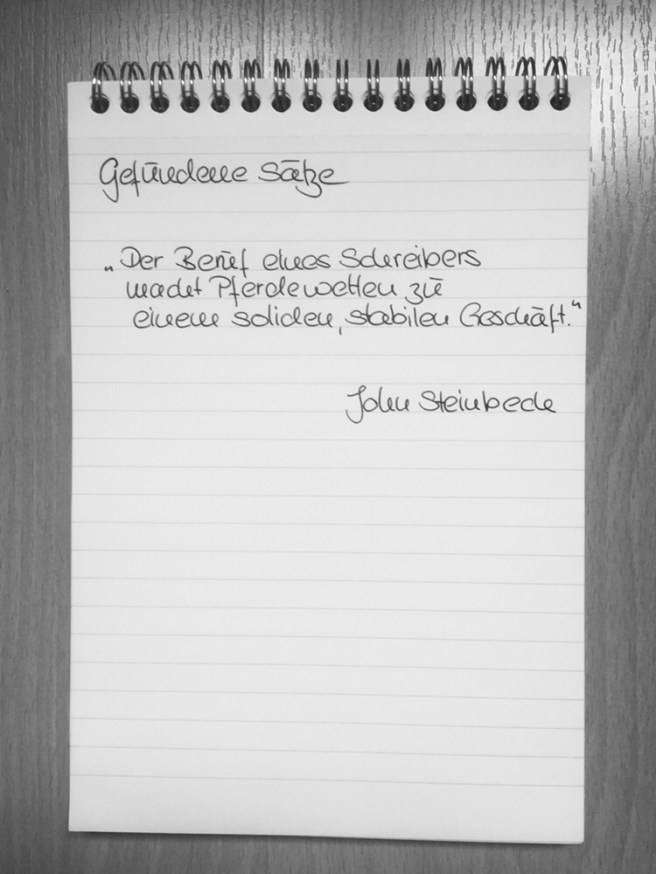 Gefundene Sätze
„Der Beruf eines Schreibers
macht Pferdewetten zu
einem soliden, stabilen Geschäft."
John Steinbeck